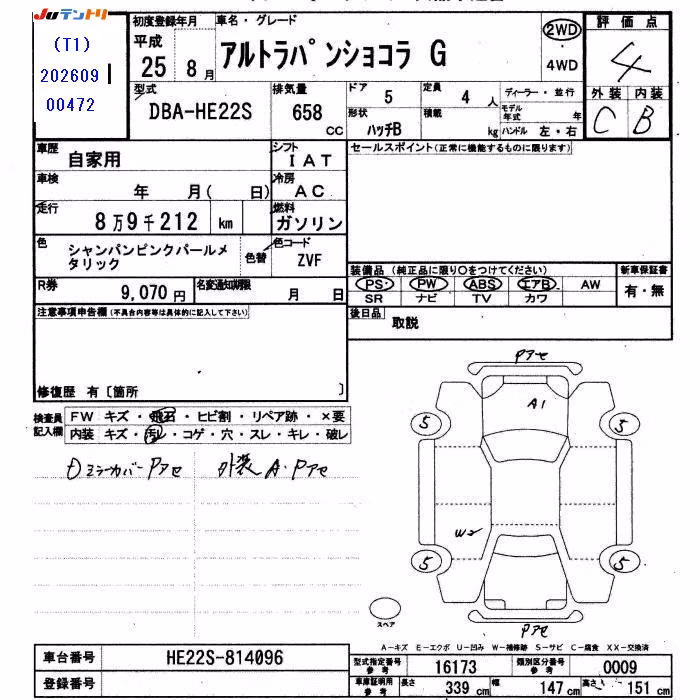 Juテントリ
(T1)
202609
00472
初度登録年月
平成
25 8月
車名・グレード
アルトラパンショコラ G
2WD
4WD
評価点
4
外装 内装
C B
型式
DBA-HE22S
排気量
658
CC
ドア
5
定員
4人
ディーラー・並行
形状
ハッチB
積載
kg
モデル年式 年
ハンドル 左・右
車歴
自家用
シフト
IAT
セールスポイント(正常に機能するものに限ります)
車検
年 月( 日)
冷房
AC
走行
8万9千212 km
燃料
ガソリン
色
シャンパンピンクパールメ
タリック
色替
色コード
ZVF
装備品 (純正品に限り〇をつけてください)
新車保証書
PS PW ABS エアB AW
SR ナビ TV カワ
有・無
R券
9,070 円
名変通知期限
月 日
後日品
取説
注意事項申告欄(不具合内容等は具体的に記入して下さい)
修復歴 有〔箇所 〕
検査員
記入欄
FW キズ・飛石・ヒビ割・リペア跡・×要
内装 キズ・汚レ・コゲ・穴・スレ・キレ・破レ
ミラーカバー Pアセ 外装 A・Pアセ
Pアセ
A1
5 5
W2
5 5
Pアセ
スペア
A-キズ E-エクボ U-凹み W-補修跡 S-サビ C-腐食 XX-交換済
車台番号
HE22S-814096
登録番号
型式指定番号
参考
16173
類別区分番号
参考
0009
車庫証明用
参考
長さ 339 cm 幅 147 cm 高さ 151 cm